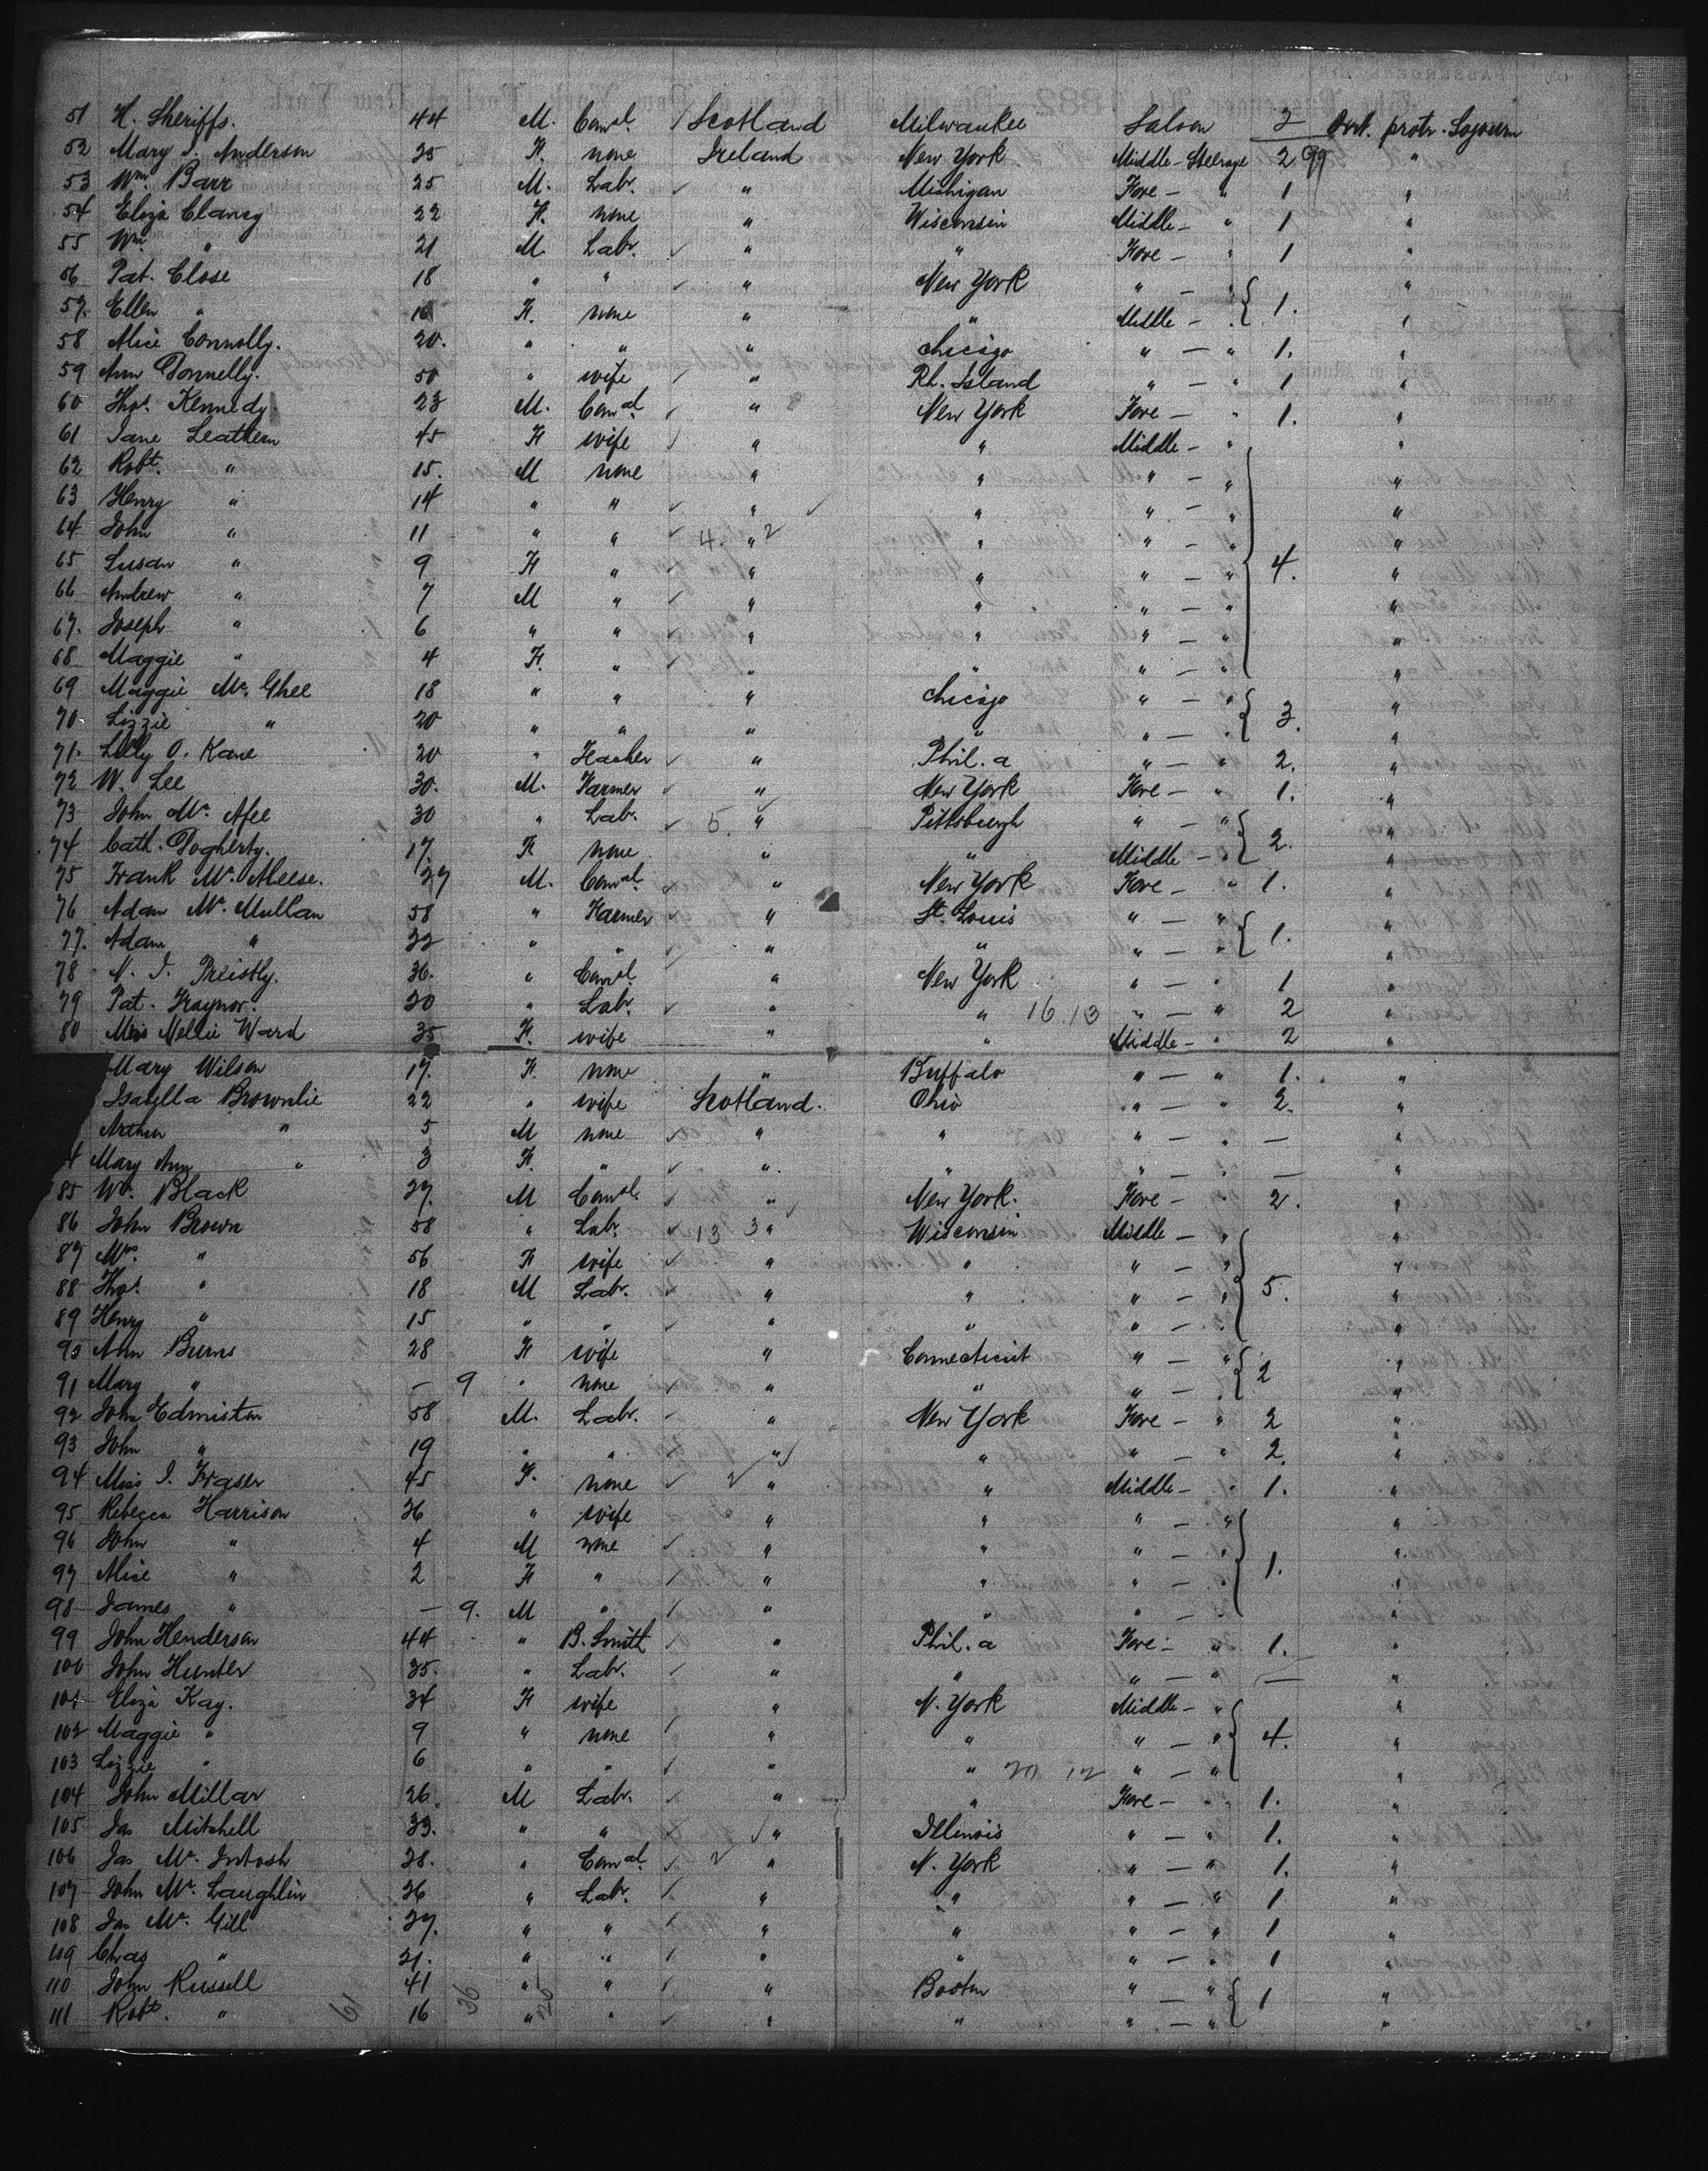 51 H. Sheriffs. 44 M. Comal. Scotland Milwaukee Saloon 2 Port. protr. Sojourn
52 Mary J. Anderson 25 F. none Ireland New York Middle - Steerage 2 99 "
53 Wm. Barr 25 M. Labr. " Michigan Fore - " 1 "
54 Eliza Clancy 22 F. none " Wisconsin Middle - " 1 "
55 Wm. " 21 M. Labr. " " Fore - " 1 "
56 Pat. Close 18 " " " New York " - "
57. Ellen " 16 F. none " " Middle - " 1. "
58 Alice Connolly. 20. " " " Chicago " - " 1. "
59 Ann Donnelly. 50 " wife " Rh. Island " - " 1 "
60 Thos. Kennedy. 23 M. Comal " New York Fore - " 1. "
61 Jane Leathem 45 F wife " " Middle - " "
62 Robt. " 15. M none " " " - " "
63 Henry " 14 " " " " " - " "
64 John " 11 " " 4. " 2 " " - " "
65 Susan " 9 F " " " " - " 4. "
66 Andrew " 7 M " " " " - " "
67. Joseph " 6 " " " " " - " "
68 Maggie " 4 F. " " " " - " "
69 Maggie Mc. Ghee 18 " " " Chicago " - " "
70 Lizzie " 20 " " " " " - " 3. "
71. Lilly O. Kane 20 " Teacher " Phil. a " - " 2. "
72 W. Lee 30. M. Farmer " New York Fore - " 1. "
73 John Mc. Afee 30 " Labr. 5. " Pittsburgh " - " "
74 Cath. Dogherty. 17 F. none " " Middle - " 2. "
75 Frank Mc. Aleese. 27 M. Comal " New York Fore - " 1. "
76 Adam Mc. Mullan 58 " Farmer " St. Louis " - " "
77. Adam " 32 " " " " " - " 1. "
78 N. J. Preistly. 36. " Comal " New York " - " 1 "
79 Pat. Traynor. 20 " Labr. " " 16 13 " - " 2 "
80 Mrs Nellie Ward 35 F. wife " " Middle - " 2 "
Mary Wilson 17. F. none " Buffalo " - " 1. "
Isabella Brownlie 22 " wife Scotland. Ohio " - " 2. "
Arthur " 5 M none " " " - " — "
4 Mary Ann " 3 F. " " " " - " — "
85 Wm. Black 27. M Comal. " New York. Fore - " 2. "
86 John Brown 58 " Labr 13 3 " Wisconsin Middle - " "
87 Mrs. " 56 F wife " " " - " "
88 Thos. " 18 M Labr. " " " - " 5. "
89 Henry " 15 " " " " " - " "
90 Ann Burns 28 F wife " Connecticut " - " "
91 Mary " — 9 " none " " " - " 2 "
92 John Edmiston 58 M. Labr. " New York Fore - " 2 "
93 John " 19 " " " " " - " 2. "
94 Miss J. Fraser 45 F. none 2 " " Middle - " 1. "
95 Rebecca Harrison 36 " wife " " " - " "
96 John " 4 M none " " " - " "
97 Alice " 2 F " " " " - " 1. "
98 James " — 9. M " " " " - " "
99 John Henderson 44 " B. Smith " Phil. a Fore - " 1. "
100 John Hunter 35. " Labr. " " " - " — "
101 Eliza Kay. 34 F wife " N. York Middle - " "
102 Maggie " 9 " none " " " - " 4. "
103 Lizzie " 6 " " " " 20 12 " - " "
104 John Millar 26. M Labr. " " Fore - " 1. "
105 Jas Mitchell 33. " " " Illinois " - " 1. "
106 Jas Mc. Intosh 28. " Comal. 2 " N. York " - " 1. "
107 John Mc. Laughlin 36 " Labr. " " " - " 1 "
108 Jas Mc. Gill 27. " " " " " - " 1 "
109 Chas " 21. " " " " " - " 1 "
110 John Russell 41 " " " Boston " - " "
111 Robt. " 16 " " " " " - " 1 "
61 36 25